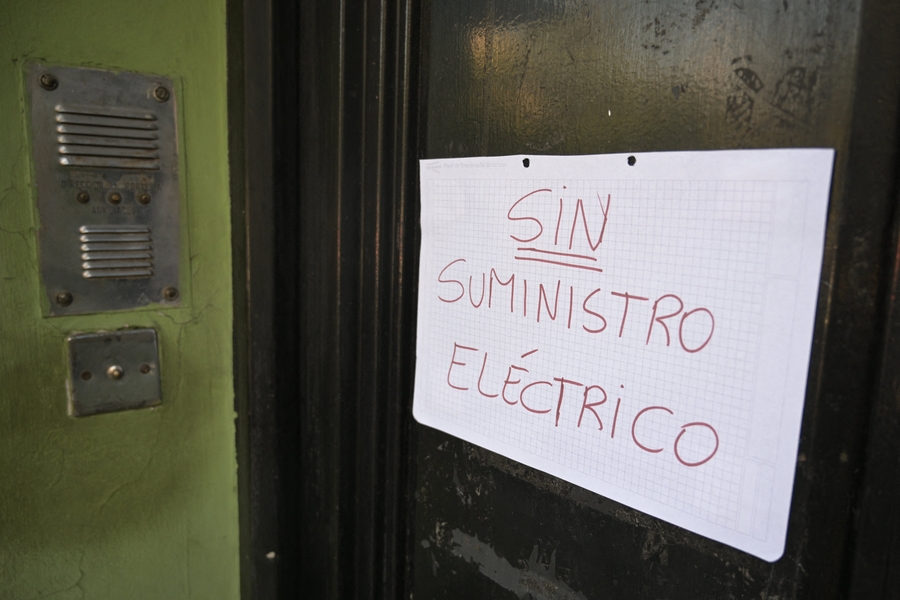 SiN
SUMINISTRO
ELÉCTRiCO